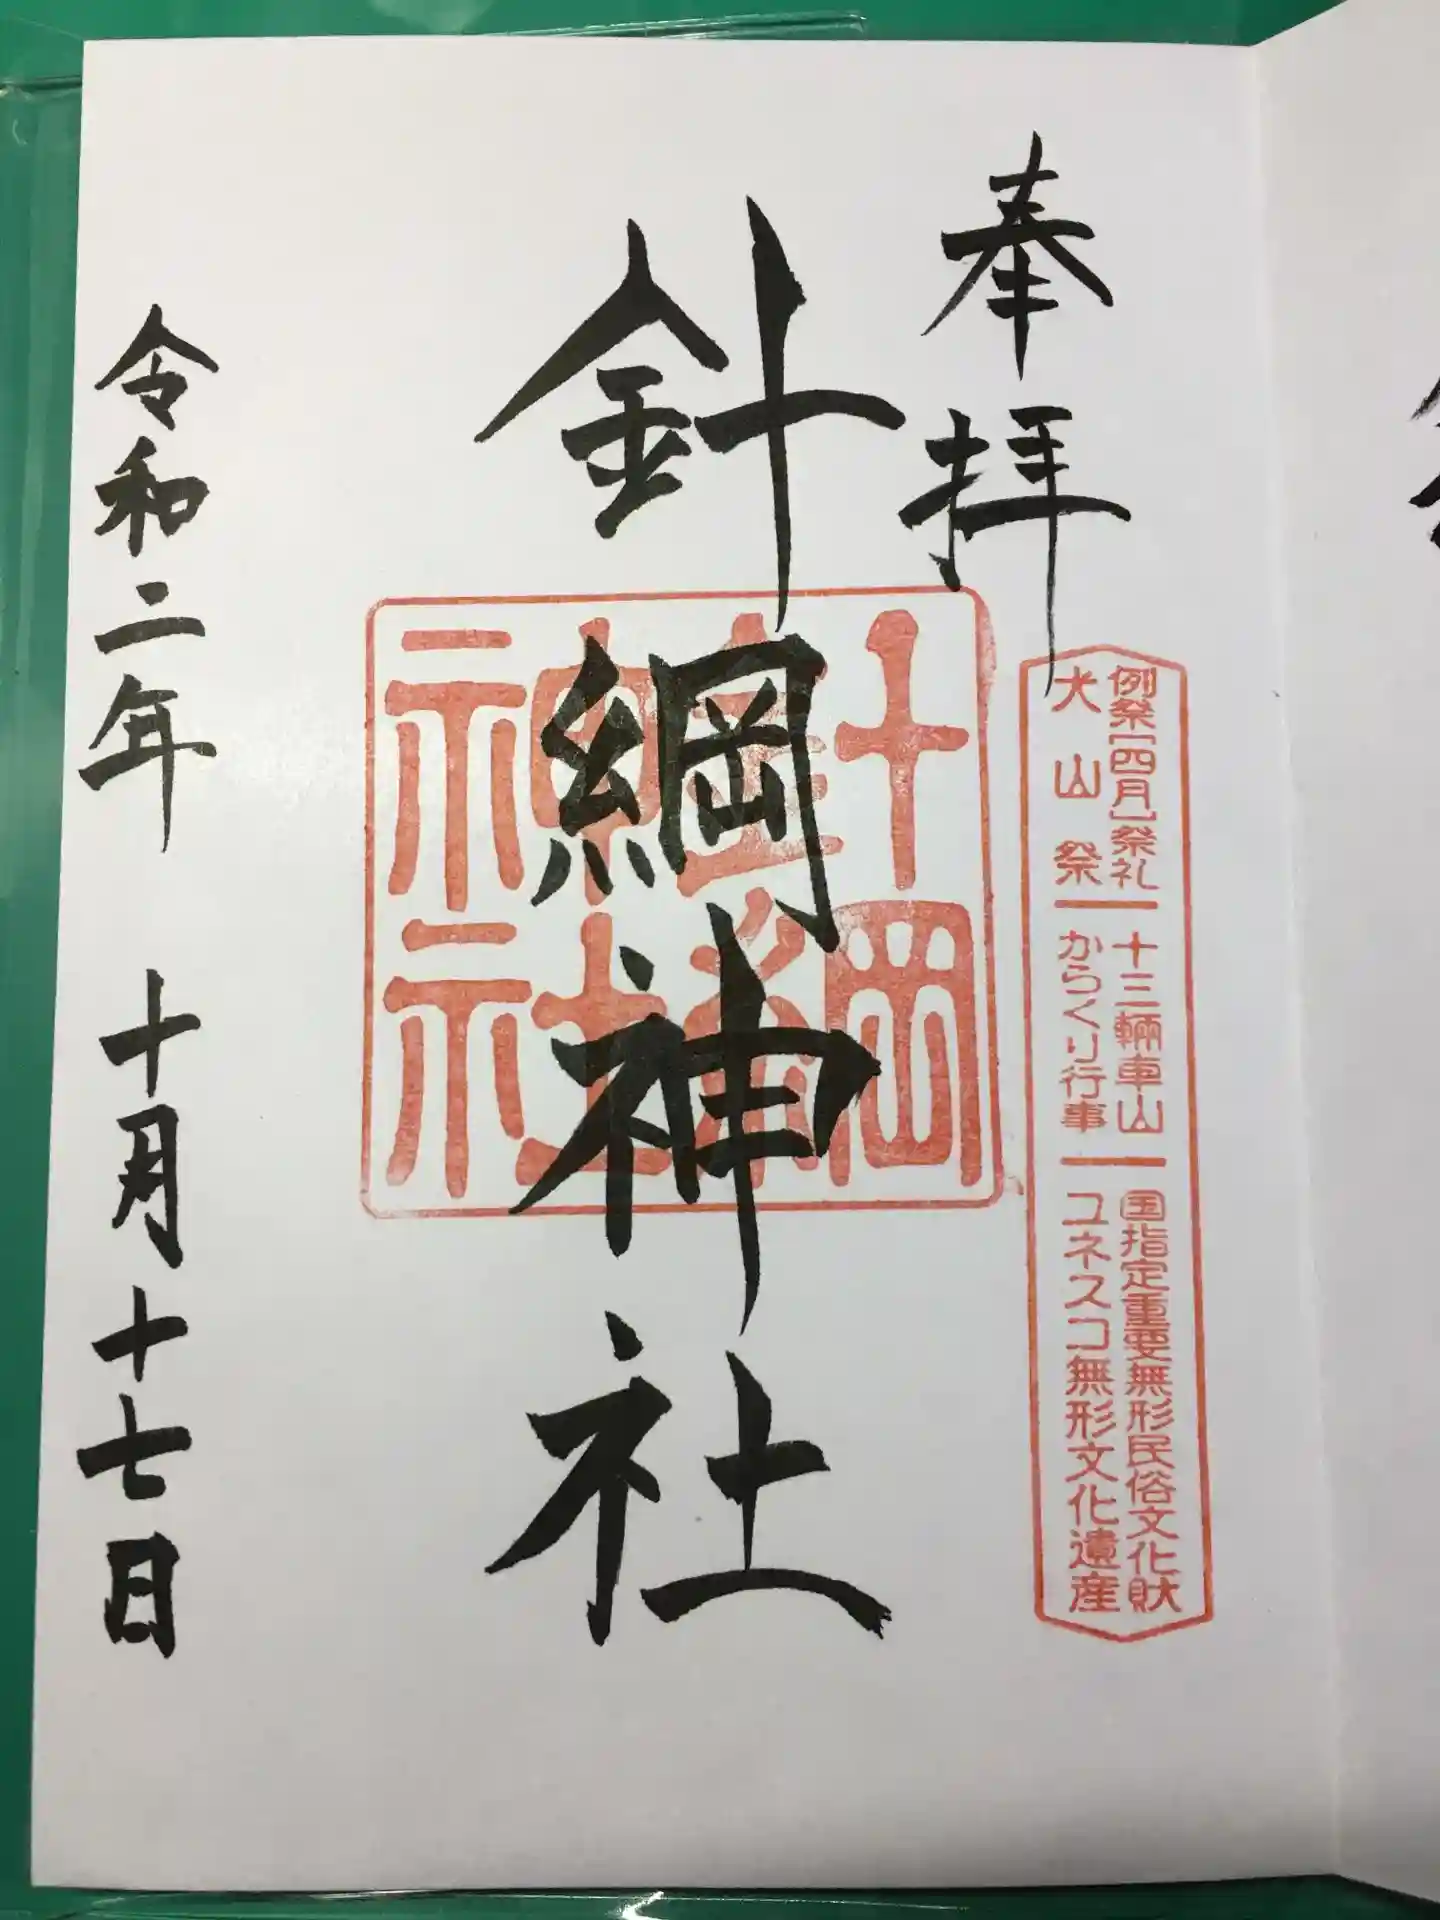 奉拝
例祭[四月]祭礼
犬山祭
十三輛車山
からくり行事
国指定重要無形民俗文化財
ユネスコ無形文化遺産
針綱神社
針綱神社
令和二年 十月十七日